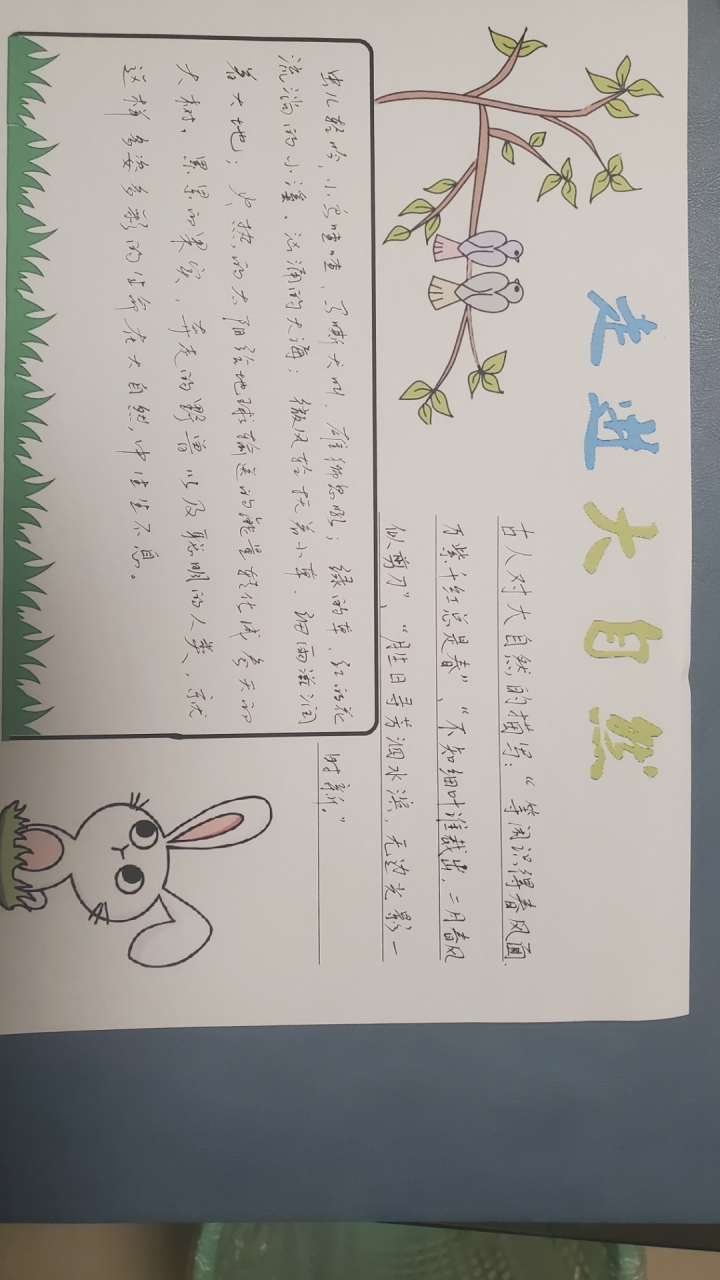 走进大自然
古人对大自然的描写：“等闲识得春风面，
万紫千红总是春”、“不知细叶谁裁出，二月春风
似剪刀”、“胜日寻芳泗水滨，无边光影一
时新。”
虫儿轻吟，小鸟喳喳，马嘶犬叫，雄狮怒吼；绿的草、红的花
流淌的小溪、汹涌的大海；微风轻抚着小草、细雨滋润
着大地；火热的太阳给地球输送的能量转化成参天的
大树，累累的果实，奔走的野兽以及聪明的人类，就
这样多姿多彩的生命在大自然中生生不息。